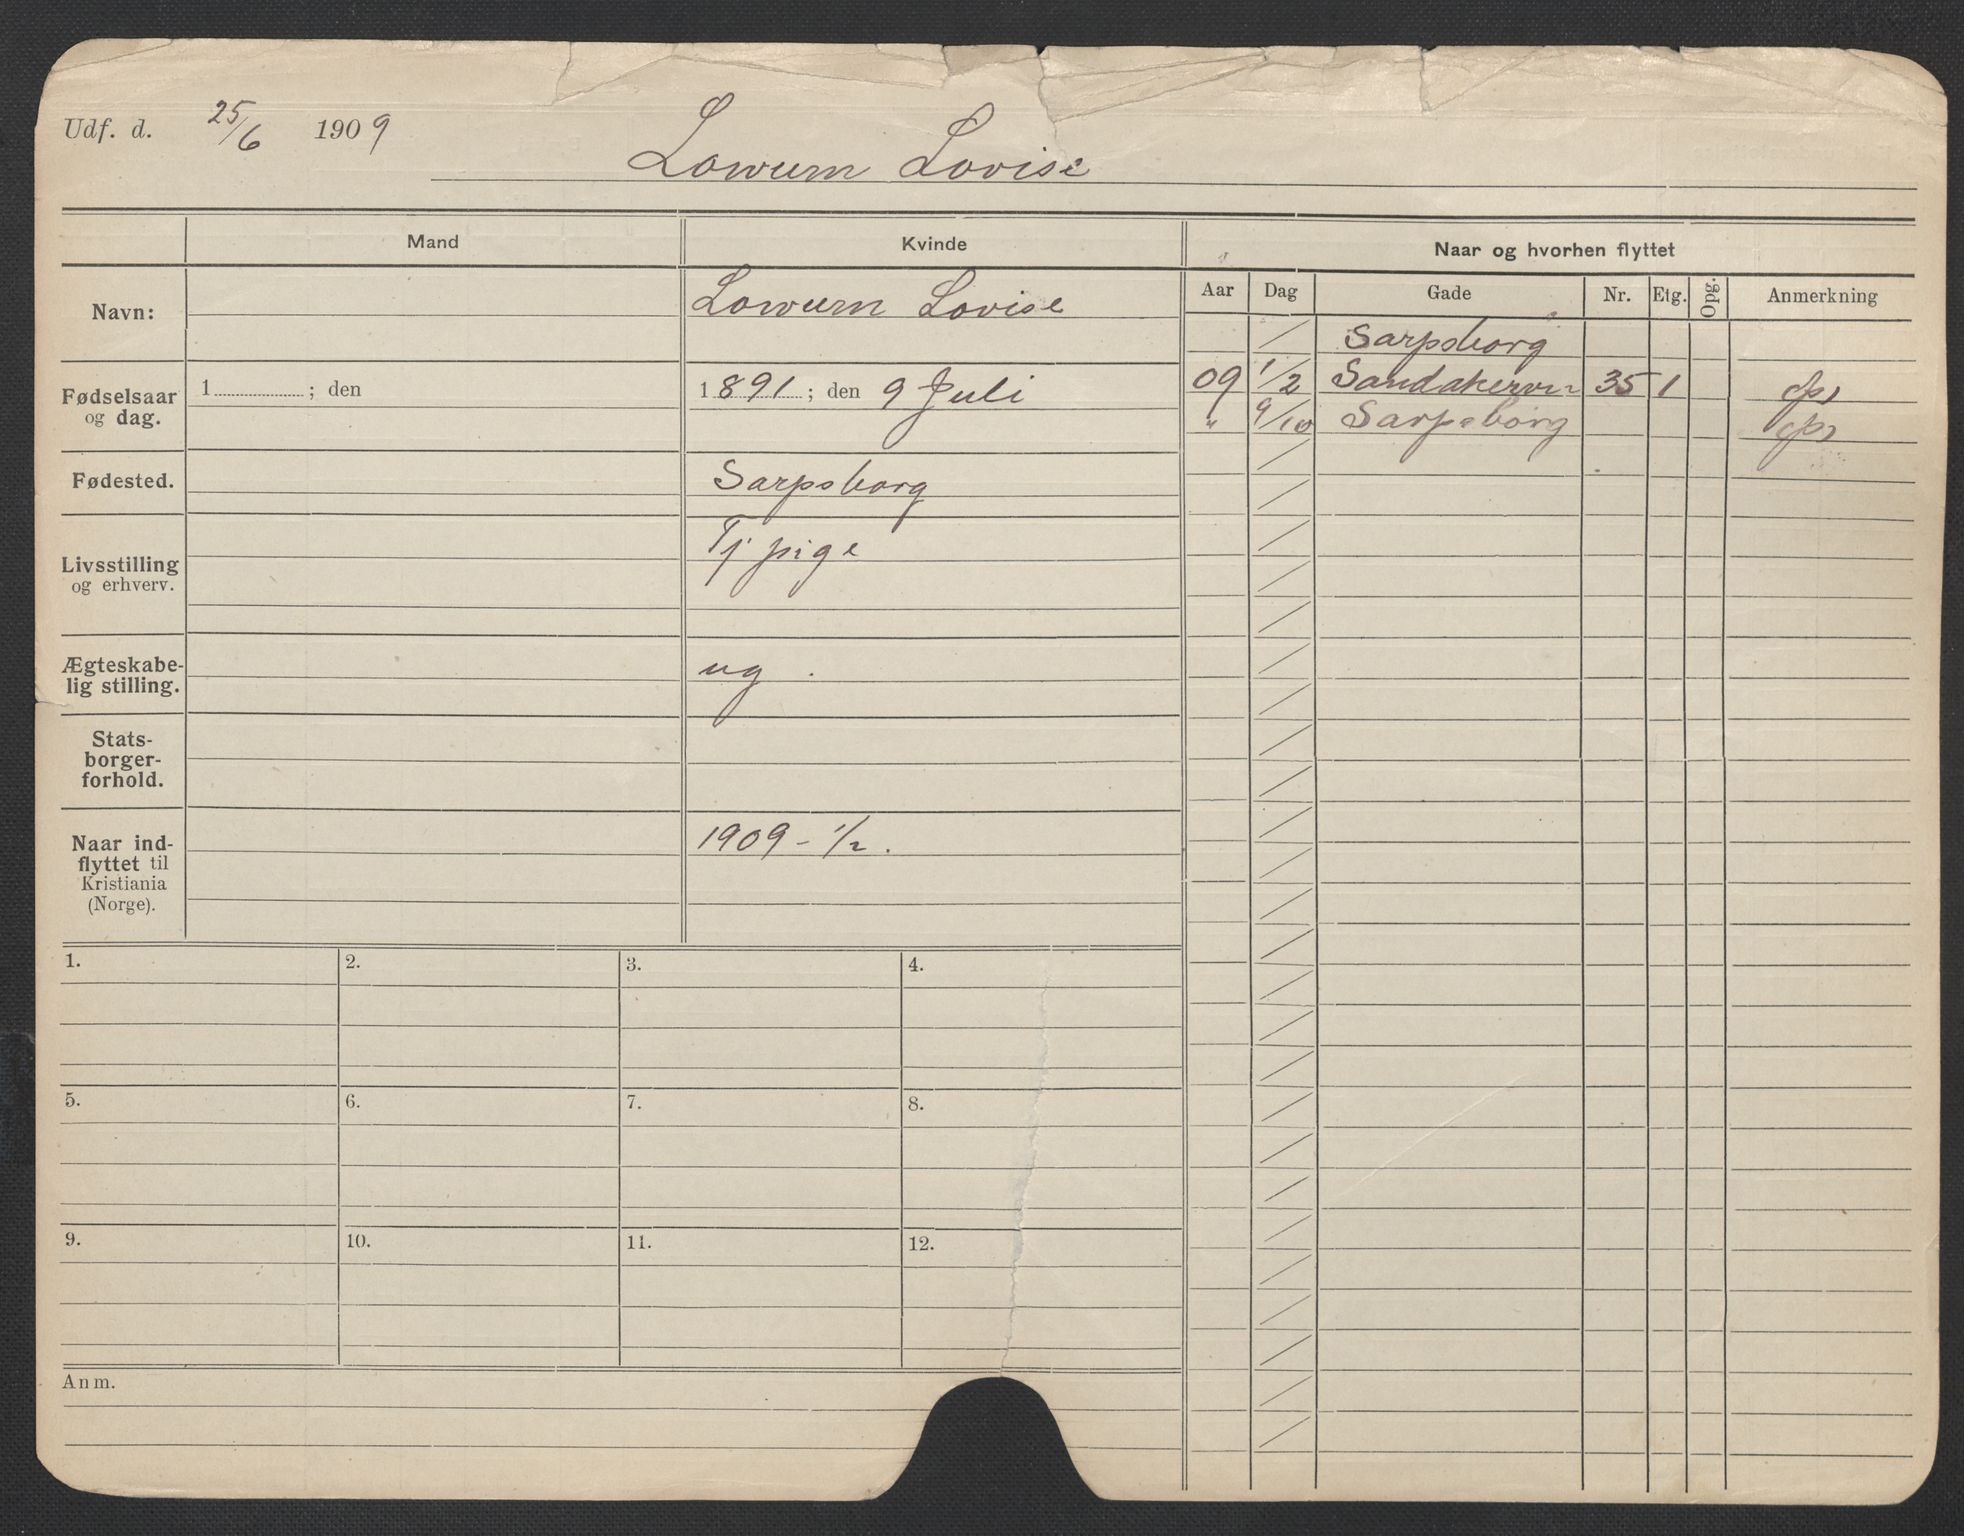 Udf. d. 25/6 1909
Lowum Lovise
Mand Kvinde Naar og hvorhen flyttet
Aar Dag Gade Nr. Etg. Opg. Anmerkning
Navn: Lowum Lovise
Sarpsborg
09 1/2 Sandakervn 35 1
" 9/10 Sarpsborg
Fødselsaar
og dag.
1 ; den
1891 ; den 9 Juli
Fødested. Sarpsborg
Livsstilling
og erhverv.
Tj pige
Ægteskabe-
lig stilling.
ug.
Stats-
borger-
forhold.
Naar ind-
flyttet til
Kristiania
(Norge).
1909 - 1/2.
1. 2. 3. 4.
5. 6. 7. 8.
9. 10. 11. 12.
Anm.